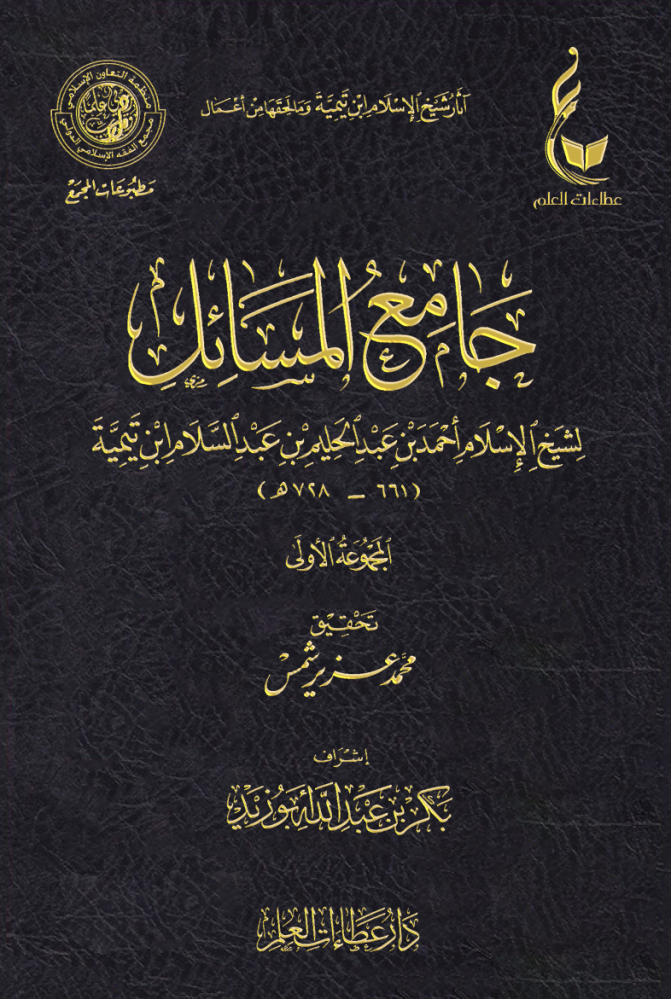 آثار شيخ الإسلام ابن تيمية وما لحقها من أعمال
عطاءات العلم
منظمة التعاون الإسلامي
مجمع الفقه الإسلامي الدولي
مطبوعات المجمع
جَامِعُ المَسَائِلِ
لِشَيْخِ الإِسْلَامِ أَحْمَدَ بْنِ عَبْدِ الحَلِيمِ بْنِ عَبْدِ السَّلَامِ ابْنِ تَيْمِيَّةَ
(٦٦١ - ٧٢٨هـ)
المَجْمُوعَةُ الأُولَى
تَحْقِيق
محمّد عزير شمس
إشراف
بَكْر بن عَبْد الله أبو زَيْد
دَار عَطَاءَات العِلْم